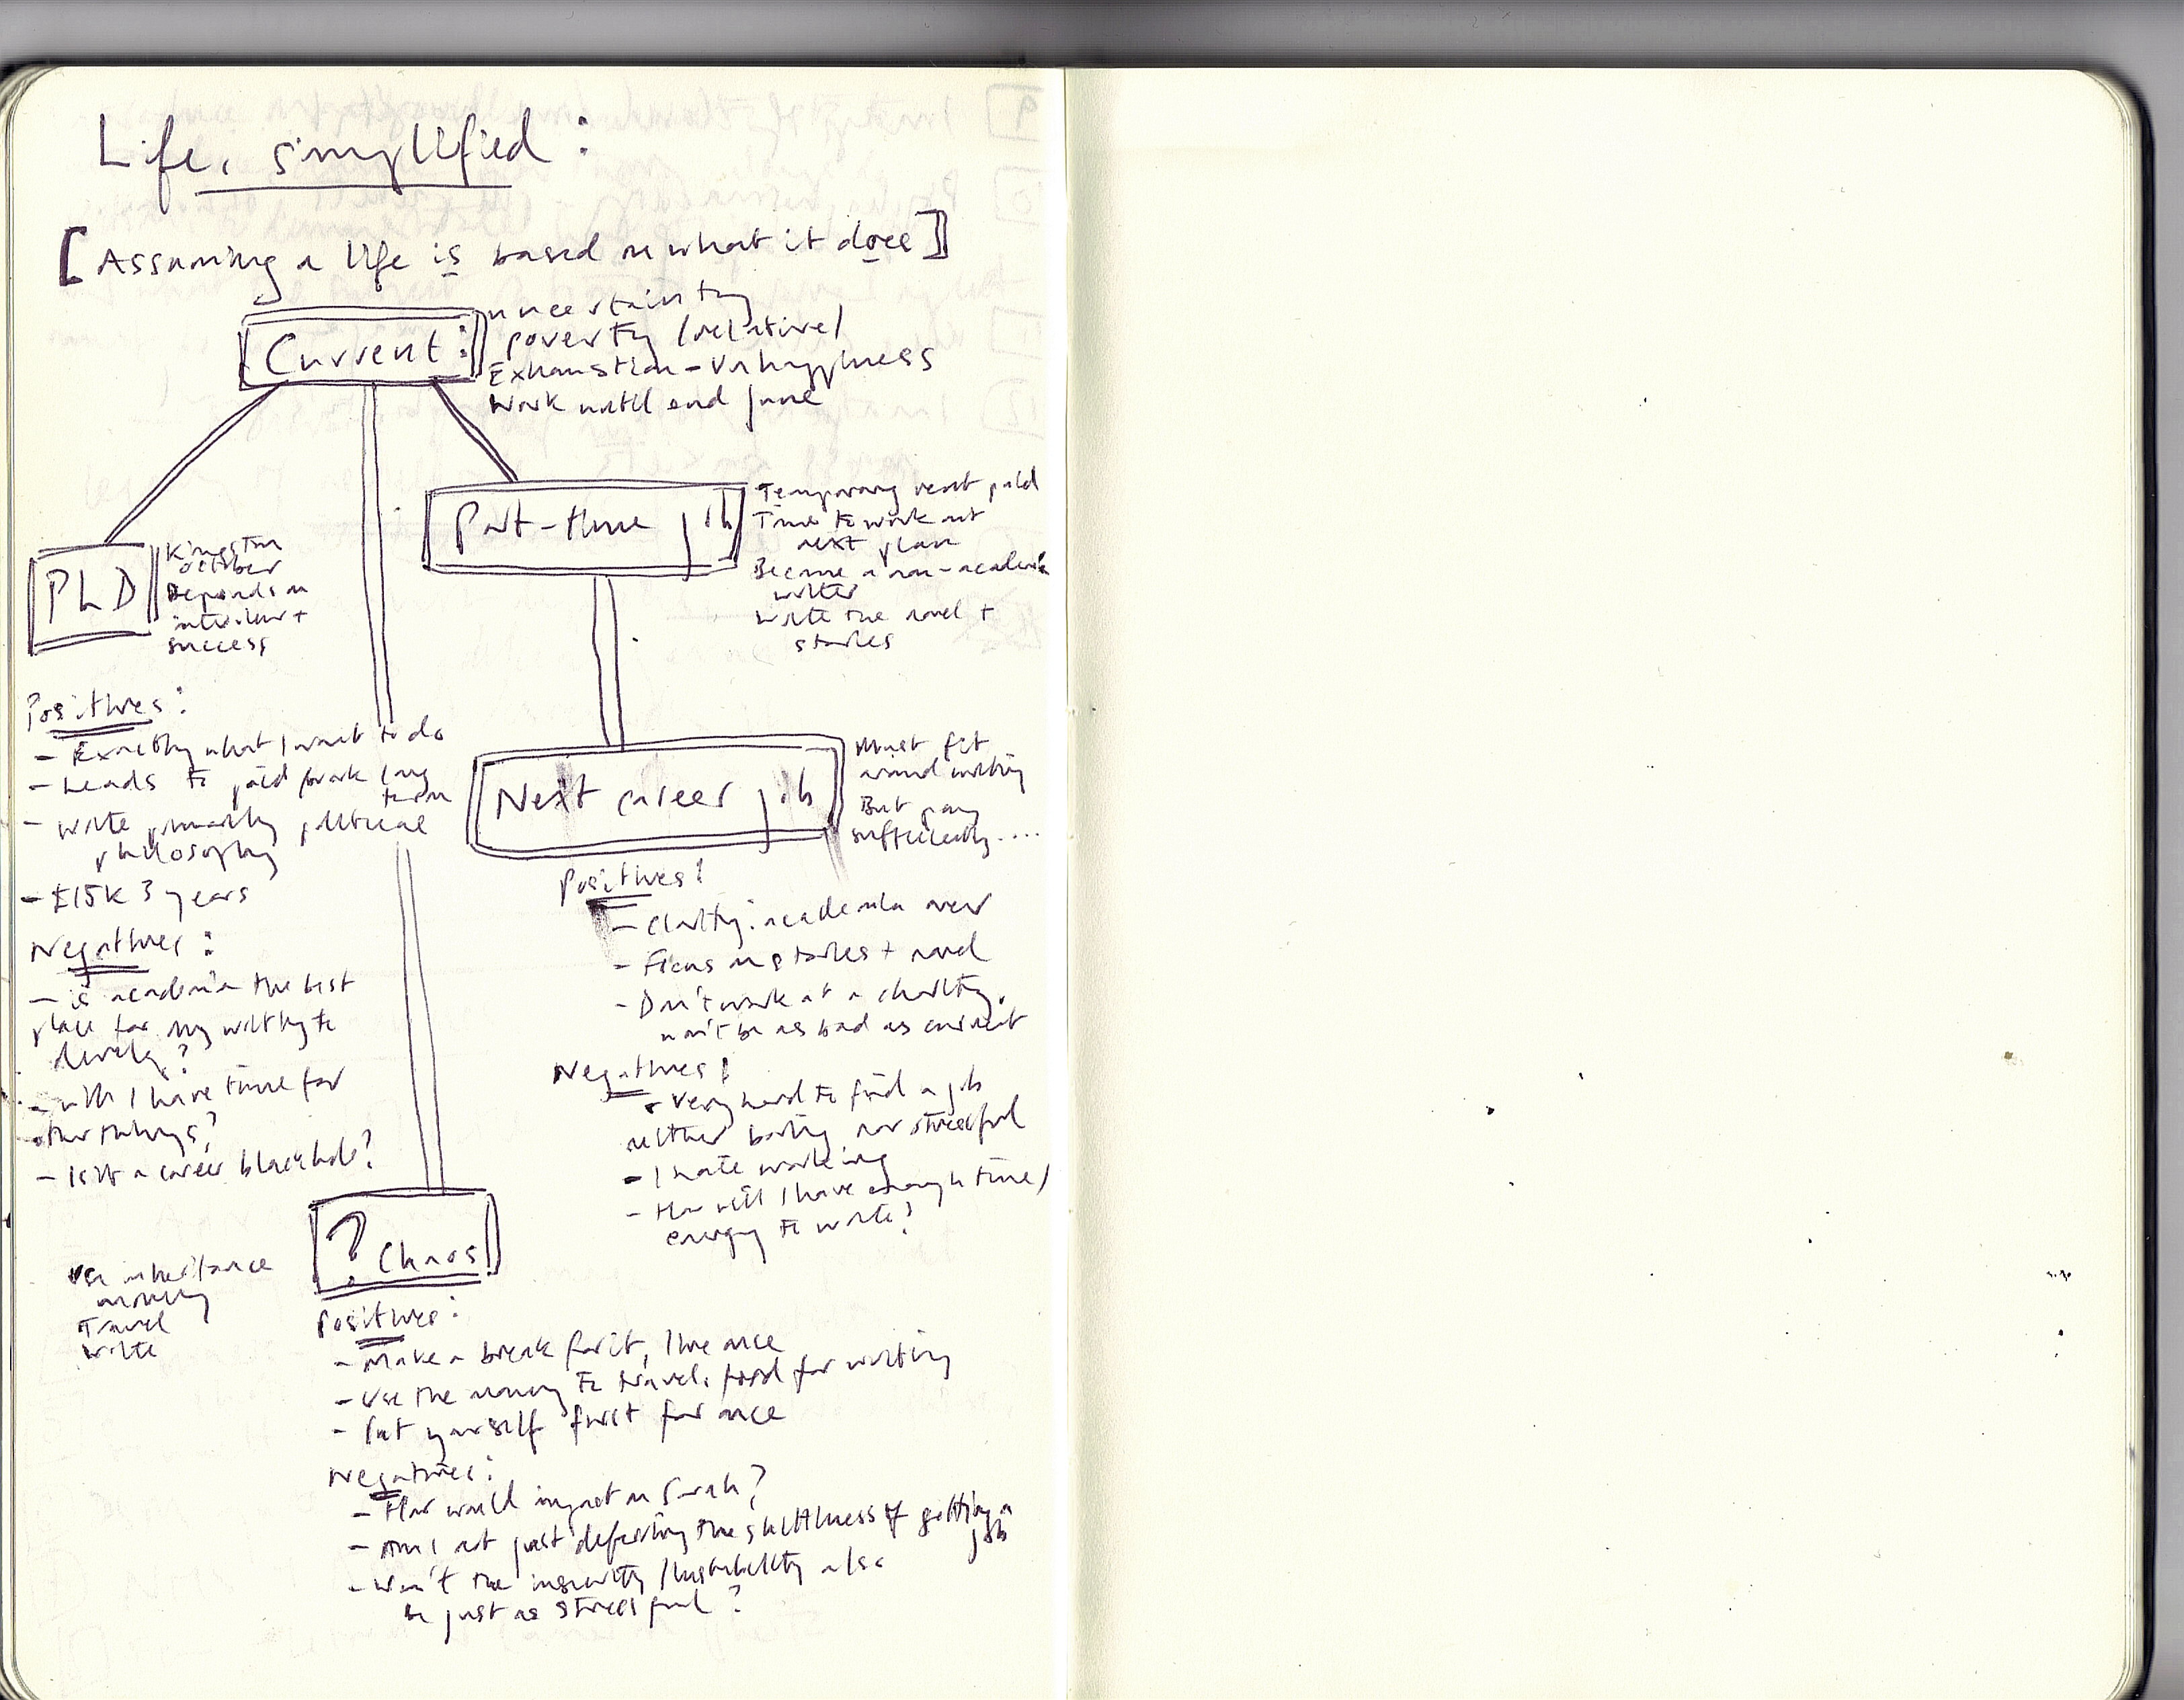 Life, simplified:
[Assuming a life is based on what it does]
Current:
uncertainty
poverty (relative)
Exhaustion - Unhappiness
Work until end June
Part-time job
Temporary rent paid
Time to work out
next plan
Become a non-academic
writer
Write the novel +
stories
PhD
Kingston
October
Depends on
interview +
success
Positives:
- Exactly what I want to do
- Leads to paid work long
term
- Write primarily political
philosophy
- £15K 3 years
Negatives:
- is academia the best
place for my writing to
develop?
- will I have time for
other things?
- Is it a career blackhole?
Next career job
Must fit
around writing
But pay
sufficiently....
Positives:
- Clarity: academia over
- Focus on stories + novel
- Don't work at a charity.
won't be as bad as current
Negatives:
- Very hard to find a job
neither boring nor stressful
- I hate working
- How will I have enough time/
energy to write?
? Chaos
Use inheritance
money
Travel
Write
Positives:
- Make a break for it, live once
- Use the money to travel: food for writing
- Put yourself first for once
Negatives:
- How would impact on Sarah?
- Am I not just deferring the shittiness of getting a
job
- Won't the insecurity/instability also
be just as stressful?